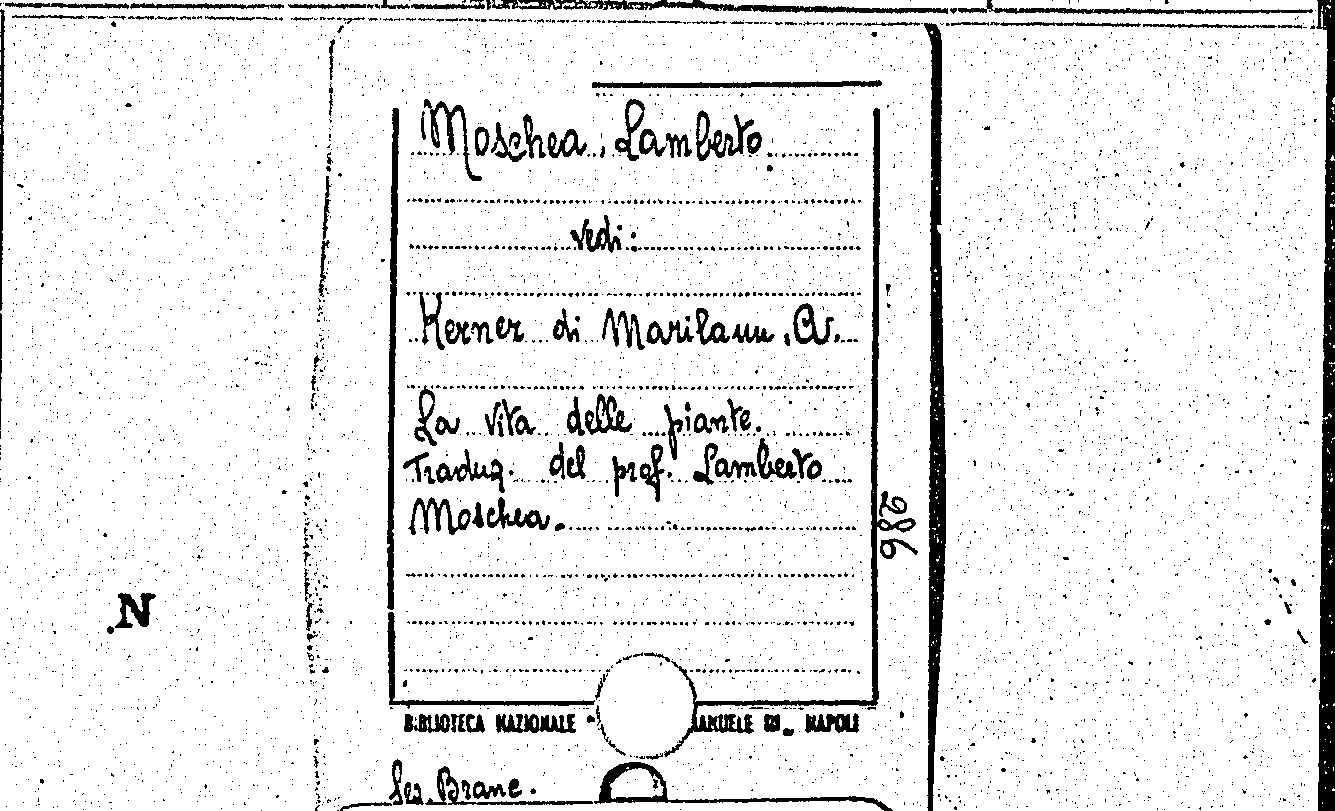 Moschea, Lamberto.
vedi:
Kerner di Marilaun, A.
La vita delle piante.
Traduz. del prof. Lamberto
Moschea.
986
N
BIBLIOTECA NAZIONALE - ANUELE III„ NAPOLI
Sez. Branc.